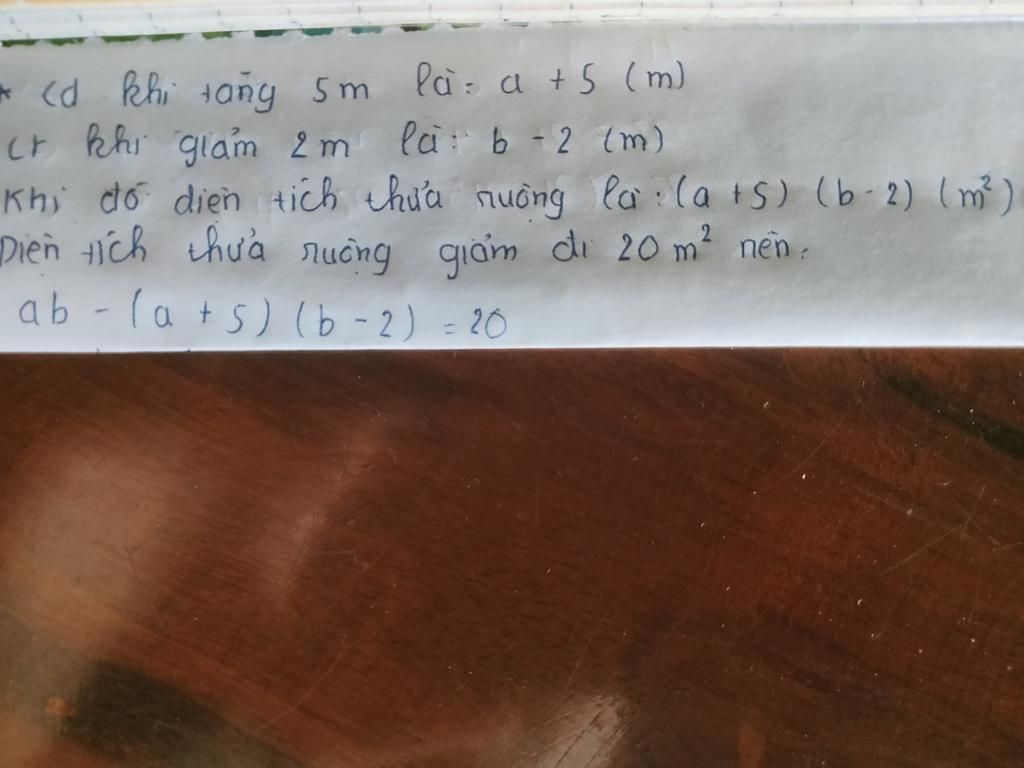 * Cd khi tăng 5m là: a + 5 (m)
Cr khi giảm 2m là: b - 2 (m)
Khi đó diện tích thửa ruộng là: (a + 5) (b - 2) (m²)
Diện tích thửa ruộng giảm đi 20 m² nên:
ab - (a + 5) (b - 2) = 20